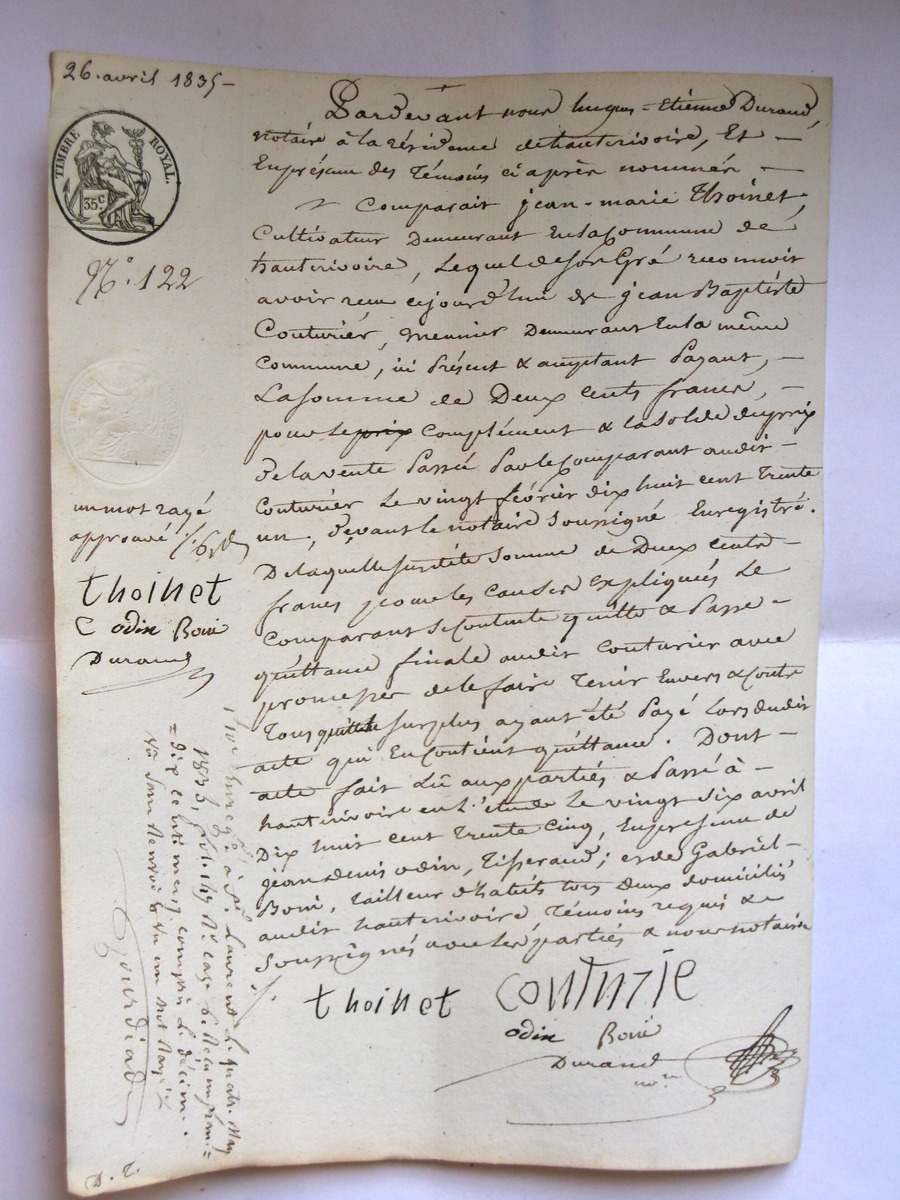 26. avril 1835 -
TIMBRE ROYAL.
35c
N°. 122
un mot rayé
approuvé
thoinet
C odin Boni
Durand
Pardevant nous hugues-Etienne Durand,
notaire à la résidence de hauterivoire, Et -
En présence des Témoins ci après nommés -
Comparait jean-marie Thoinet,
Cultivateur Demeurant En la Commune de
hauterivoire, Lequel de son Gré reconnoit
avoir reçu cejourd'hui de jean Baptiste
Couturier, meunier Demeurant En la même
Commune, ici Présent & acceptant Payant, -
La somme de Deux cents francs, -
pour le prix complément & la Solde du prix
De la vente Passée Par le Comparant audit -
Couturier Le vingt février dix huit cent Trente
un, Devant le notaire Soussigné Enregistré.
De laquelle susdite Somme de Deux cents -
francs pour les causes Expliquées Le
Comparant Se Contente quitte & Passe -
quittance finale audit Couturier avec
promesse de le faire Tenir Envers & Contre
Tous Surplus ayant été Payé Lors dudit
acte qui En Contient quittance. Dont -
acte fait Lû aux parties & Passé à -
hauterivoire en L'étude Le vingt Six avril
Dix huit cent Trente Cinq, En présence de
jean denis odin, Tisserand; et de Gabriel -
Boni, Tailleur d'habits tous Deux domiciliés
audit hauterivoire Témoins requis &
Soussignés avec les parties & nous notaire
thoinet Couturie
odin Boni
Durand
nore
Enregé. à St. Laurent Le quatre May
1835, fol. 147 Ro. case 6. Reçu un franc =
= dix centimes compris Le décime.
Vû Sans Renvoi & Vu un mot Rayé
Gourdiad
D. L.